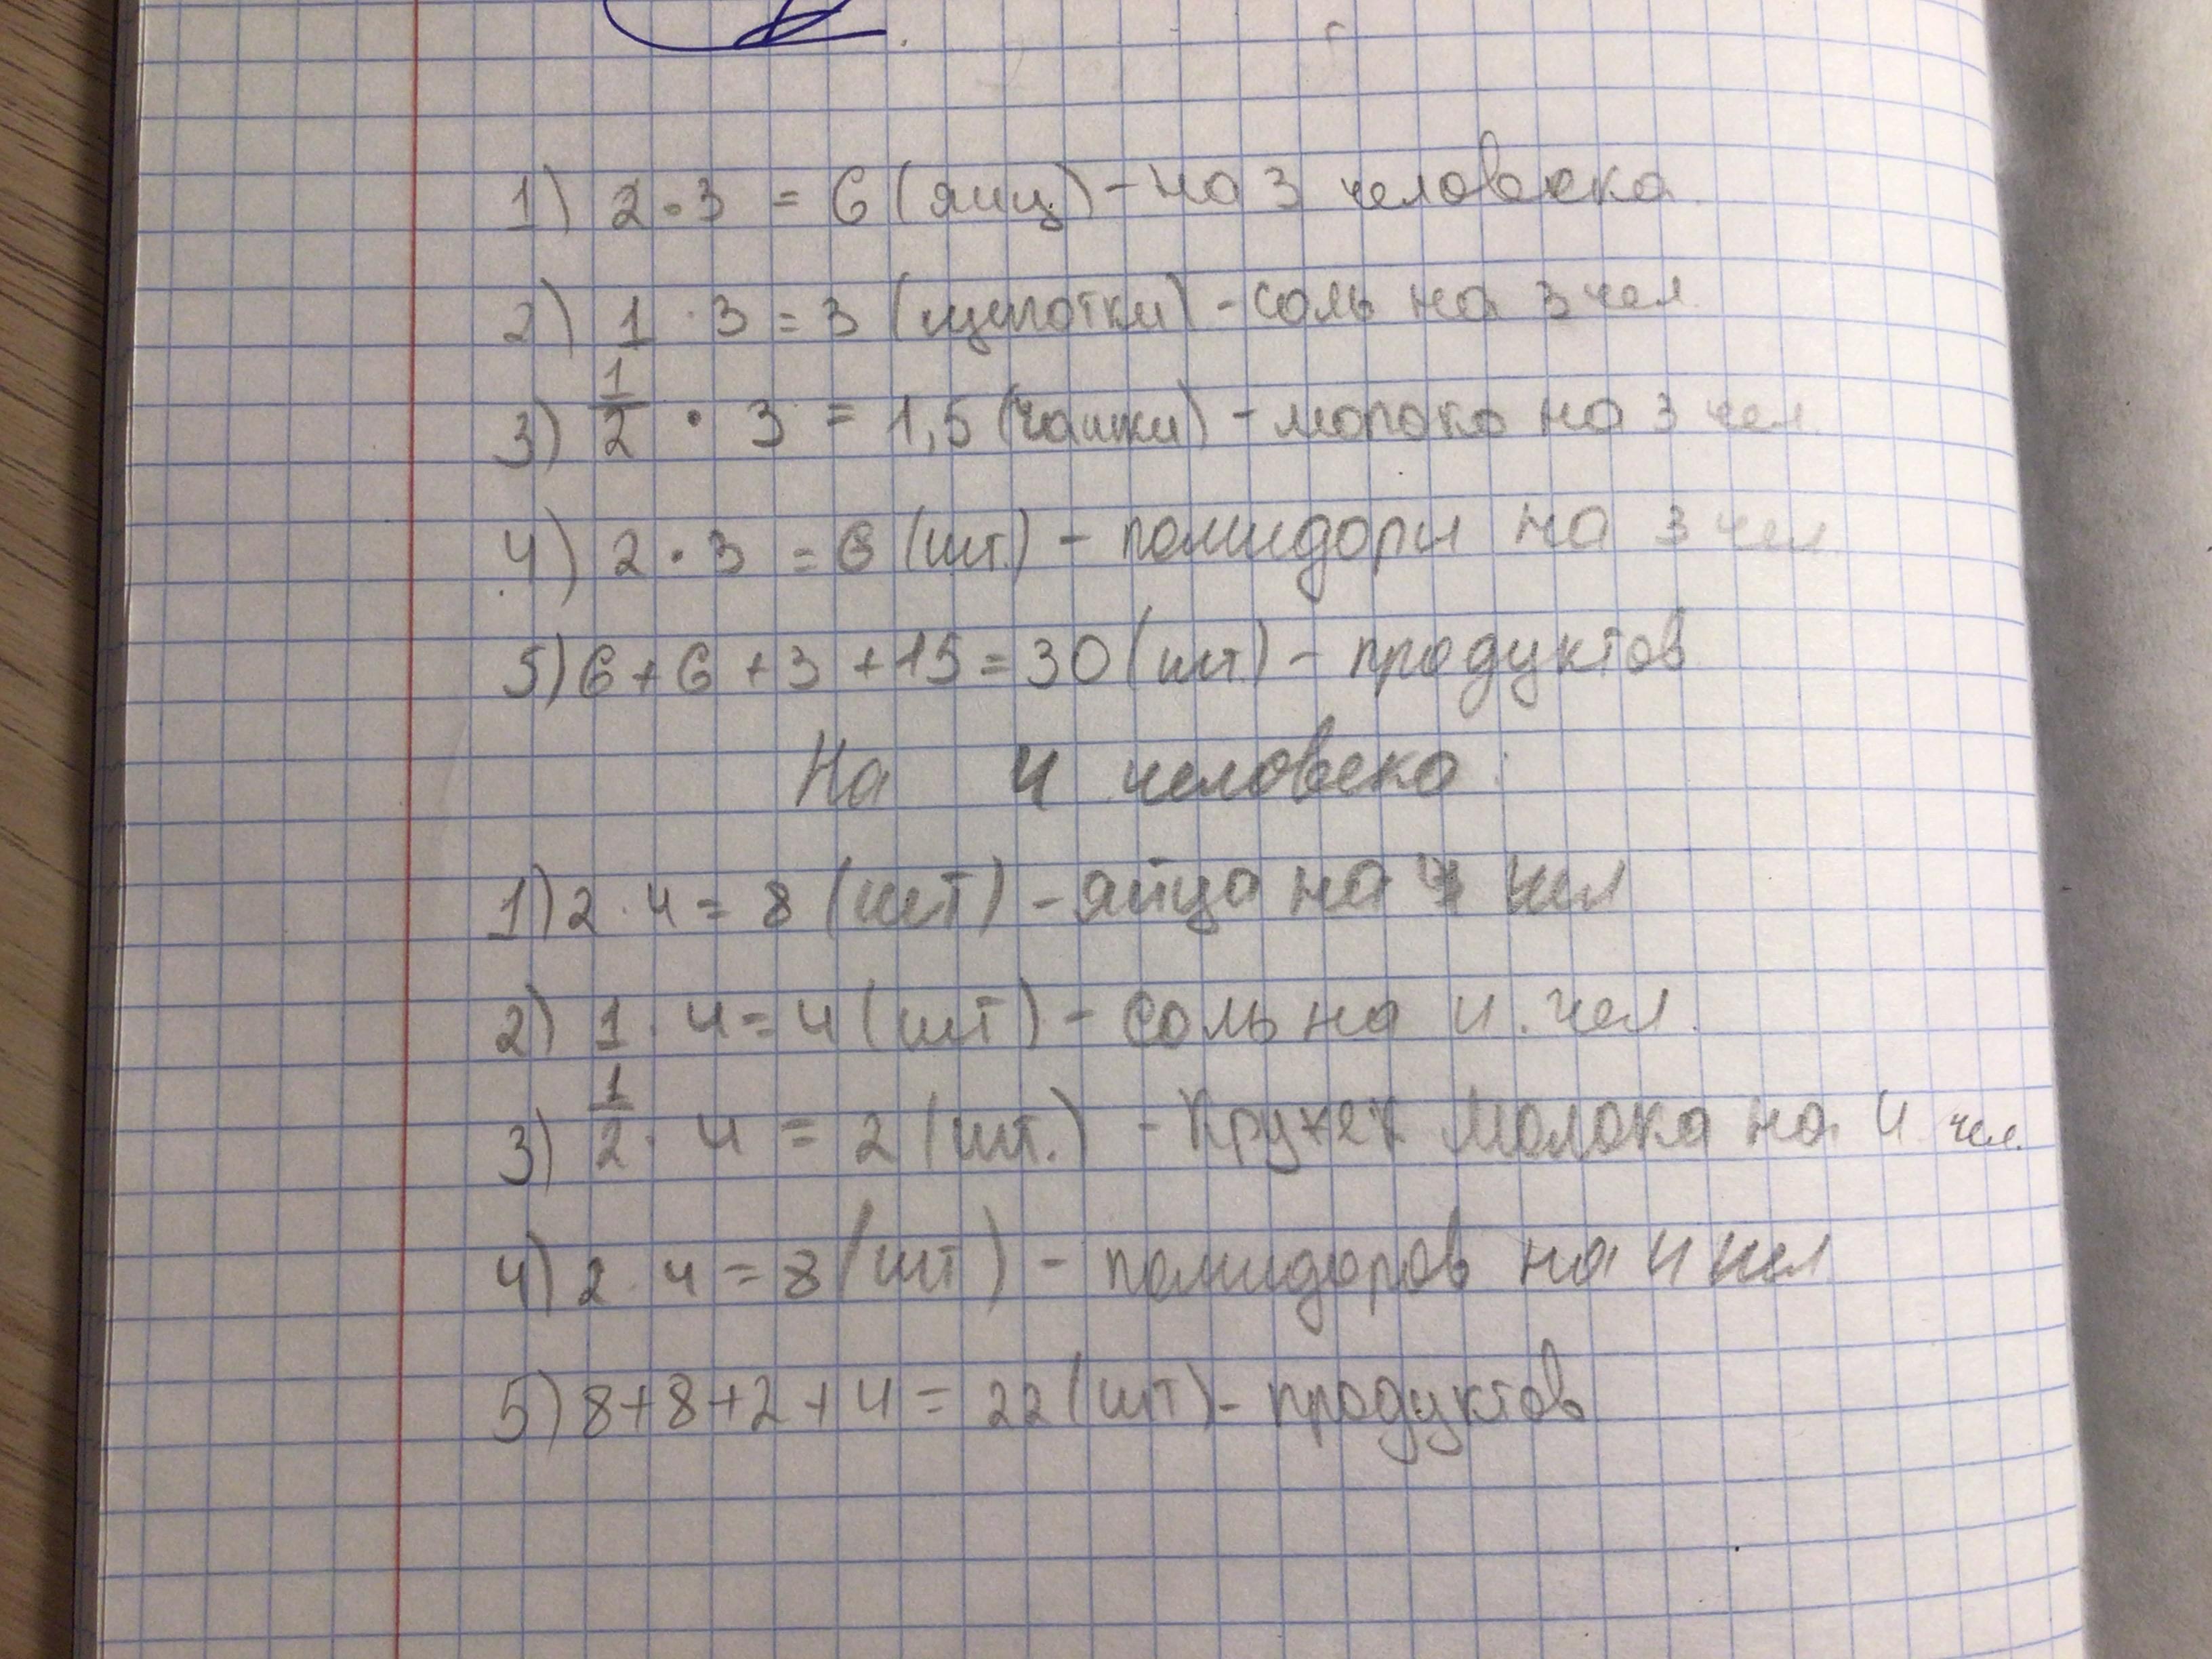 1) 2 • 3 = 6 (яиц) - на 3 человека.
2) 1 · 3 = 3 (щепотки) - соль на 3 чел.
3) 1/2 • 3 = 1,5 (чашки) - молоко на 3 чел.
4) 2 • 3 = 6 (шт.) - помидоры на 3 чел.
5) 6 + 6 + 3 + 15 = 30 (шт.) - продуктов
На 4 человека:
1) 2 · 4 = 8 (шт) - яйца на 4 чел
2) 1 · 4 = 4 (шт) - соль на 4 . чел.
3) 1/2 · 4 = 2 (шт.) - кружек молока на 4 чел.
4) 2 · 4 = 8 (шт) - помидоров на 4 чел
5) 8 + 8 + 2 + 4 = 22 (шт) - продуктов